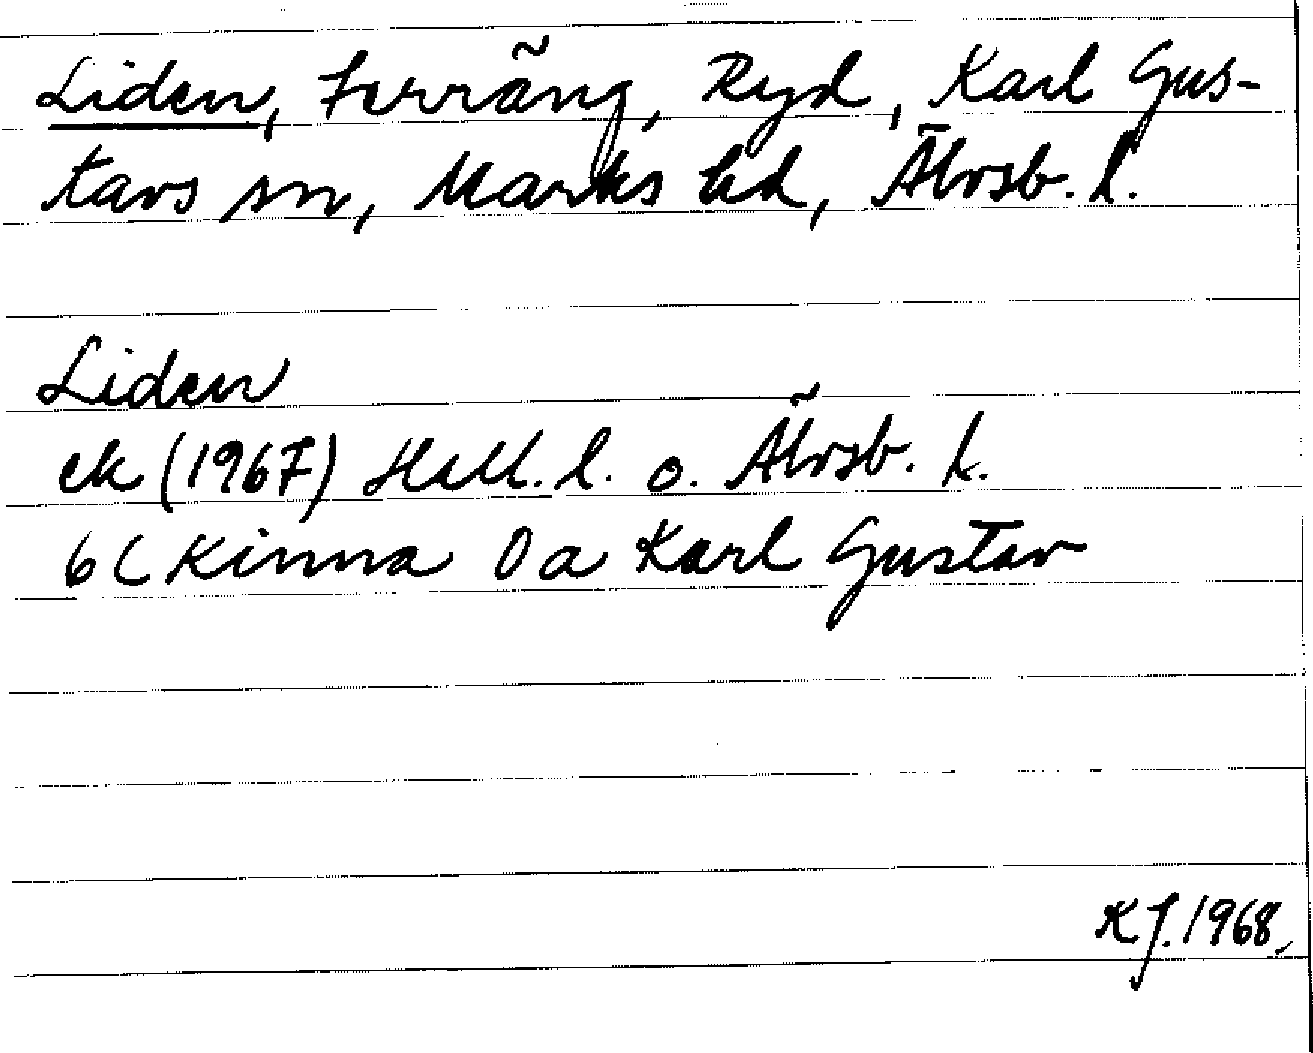 Liden, Torräng, Ryd, Karl Gus-
tavs sn, Marks hd, Älvsb. l.
Liden
ek (1967) Hall. l. o. Älvsb. l.
6C Kinna 0a Karl Gustav
KJ. 1968.